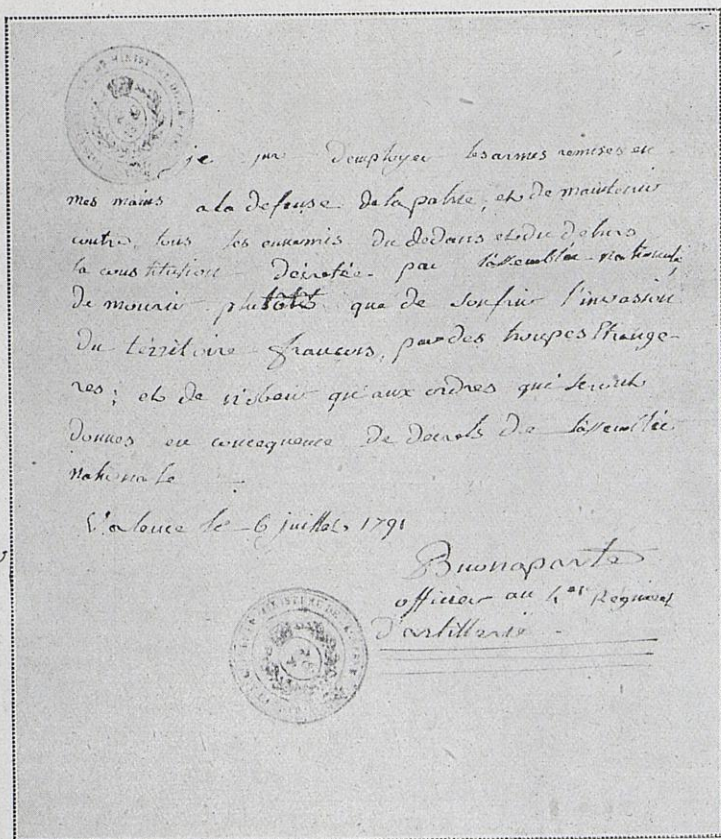 je jure d'employer les armes remises en
mes mains a la defense de la patrie, et de maintenir
contre tous les ennemis du dedans et du dehors
la constitution décretée par l'assemblée nationale,
de mourir plutôt que de soufrir l'invasion
du térritoire françois, par des troupes étrange-
res; et de n'obeir qu'aux ordres qui seront
donnes en concequence de decrets de l'assemblée
nationale
Valence le 6 juillet 1791
Buonaparte
officier au 4eme Regiment
d'artillerie